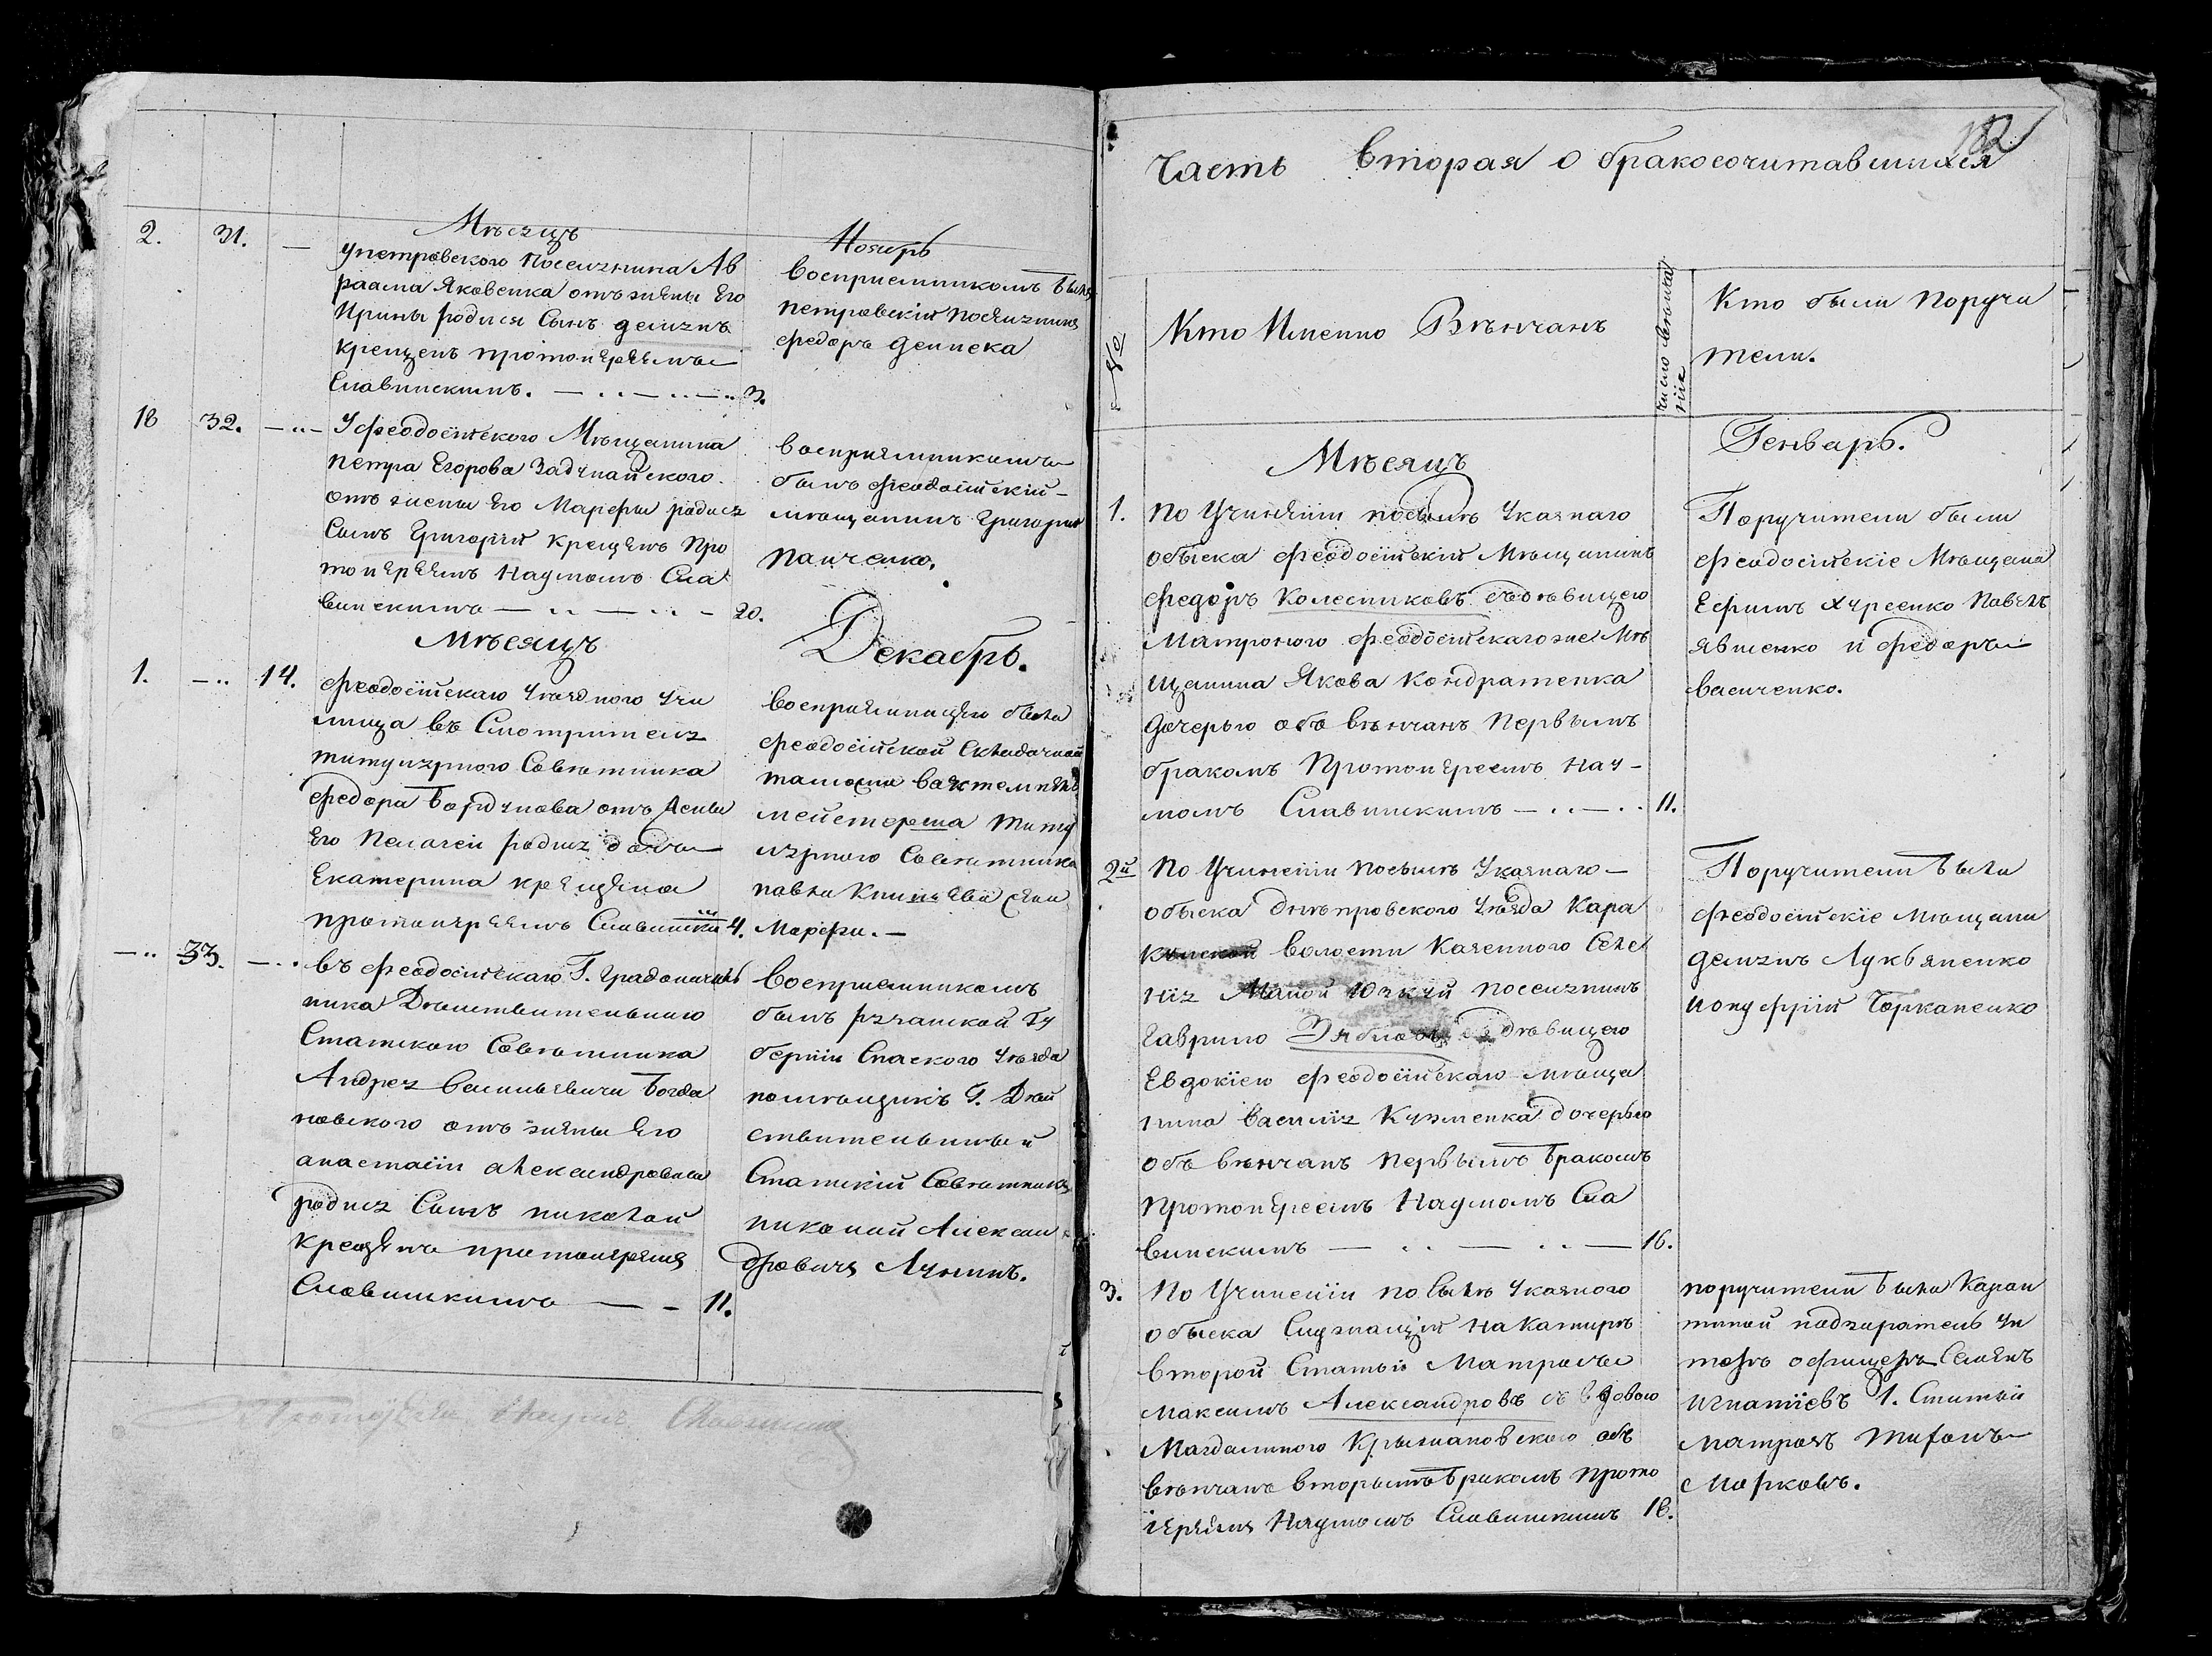 Мѣсяцъ
Ноябрь
2. 31. — упетровского Поселянина Ав
раама Яковенка отъ жены Его
Ирины родился Сынъ демянъ
крещенъ протоиереемъ
Славинскимъ. — .. — .. — .. 3.
восприемникомъ былъ
петровскій Поселянинъ
федоръ денпека
18 32. — .. — У феодосійского Мѣщанина
петра Егорова Задунайского
отъ жены Его Марфы родился
Сынъ Григорій крещенъ Про
тоиереемъ Наумомъ Сла
винскимъ — .. — .. — 20.
восприемникомъ
былъ феодосійскій
мѣщанинъ Григорій
панченко.
Мѣсяцъ
Декабрь.
1. — .. 14. феодосійскаго Уѣздного Учи
лища въ Смотрителя
титулярного Совѣтника
федора Бардунова отъ жены
Его Пелагеи родилась дочь
Екатерина крещена
протоиереемъ Славински 4.
восприемницею была
феодосійской Складочной
таможни
мейстерша титу
лярного Совѣтника
павла Князева жена
Марфа. —
— .. 33. — . въ феодосійскаго Г. Градоначаль
ника Дѣйствительного
Статского Совѣтника
Андрея Васильевича Богда
новского отъ жены Его
анастасіи александровны
родился Сынъ николай
крещенъ протоиереемъ
Славинскимъ — - 11.
восприемникомъ
былъ рязанской Гу
берніи Спаского Уѣзда
помѣщикъ Г. Дѣй
ствительный
Статскій Совѣтникъ
николай Алексан
дровичъ Лунинъ.
Протоіерей Наумъ Славинскій
182
Часть вторая о бракосочитавшихся
№
Кто Именно Вѣнчанъ
число вѣнчанія
Кто были Поручи
тели.
Мѣсяцъ
Генварь.
1. По Учиненіи посемъ Указнаго
обыска феодосійскій Мѣщанинъ
федоръ Колесниковъ съдѣвицею
Матроною феодосійскагоже Мѣ
щанина Якова Кондратенка
дочерью обвѣнчанъ Первымъ
бракомъ Протоиереемъ Нау-
момъ Славинскимъ — . . — . . 11.
Поручители были
феодосійскіе Мѣщана
Ефимъ Хурсенко Павелъ
явшенко и федоръ
васиченко.
2й По Учиненіи посемъ Указнаго —
обыска днѣпровского Уѣзда Кара
волости Казенного Селе
нія Малой поселянинъ
Гаврило Зябловъ съ дѣвицею
Евдокіею феодосійскаго мѣща
нина Василія Кузменка дочерью
обвѣнчанъ Первымъ бракомъ
Протоиереемъ Наумомъ Сла
винскимъ — . . — . . — 16.
Поручители были
феодосійскіе мѣщани
демянъ Лукьяненко
ионуфрій Чорканенко
3. По Учиненіи посемъ Указного
обыска Служащій на Катирѣ
второй Статьи Матросъ
Максимъ Александровъ съ вдовою
Магдалиною Крыжановскою об
вѣнчанъ вторымъ бракомъ прото
іереемъ Наумомъ Славинскимъ 18.
поручители были Каран
тиной надзиратель Ун
теръ офицеръ Семенъ
Игнатіевъ 1. Статьи
матрозъ тифонъ
Марковъ.